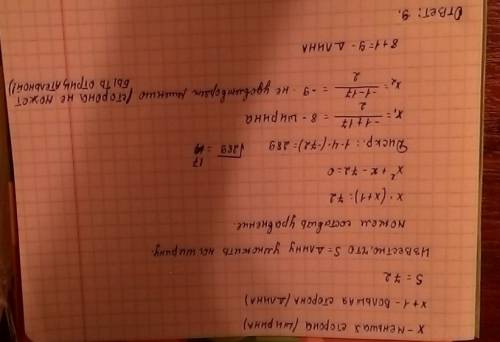 x - меньшая сторона (ширина)
x+1 - большая сторона (длина)
S = 72
Известно, что S = длину умножить на ширину.
можем составить уравнение.
x · (x+1) = 72
x² + x - 72 = 0
Дискр.: 1 - 4 · (-72) = 289 √289 = 17
x₁ = (-1+17)/2 = 8 - ширина
x₂ = (-1-17)/2 = -9 - не удовлетворят решению (сторона не может
быть отрицательной)
8+1 = 9 - длина
Ответ: 9.